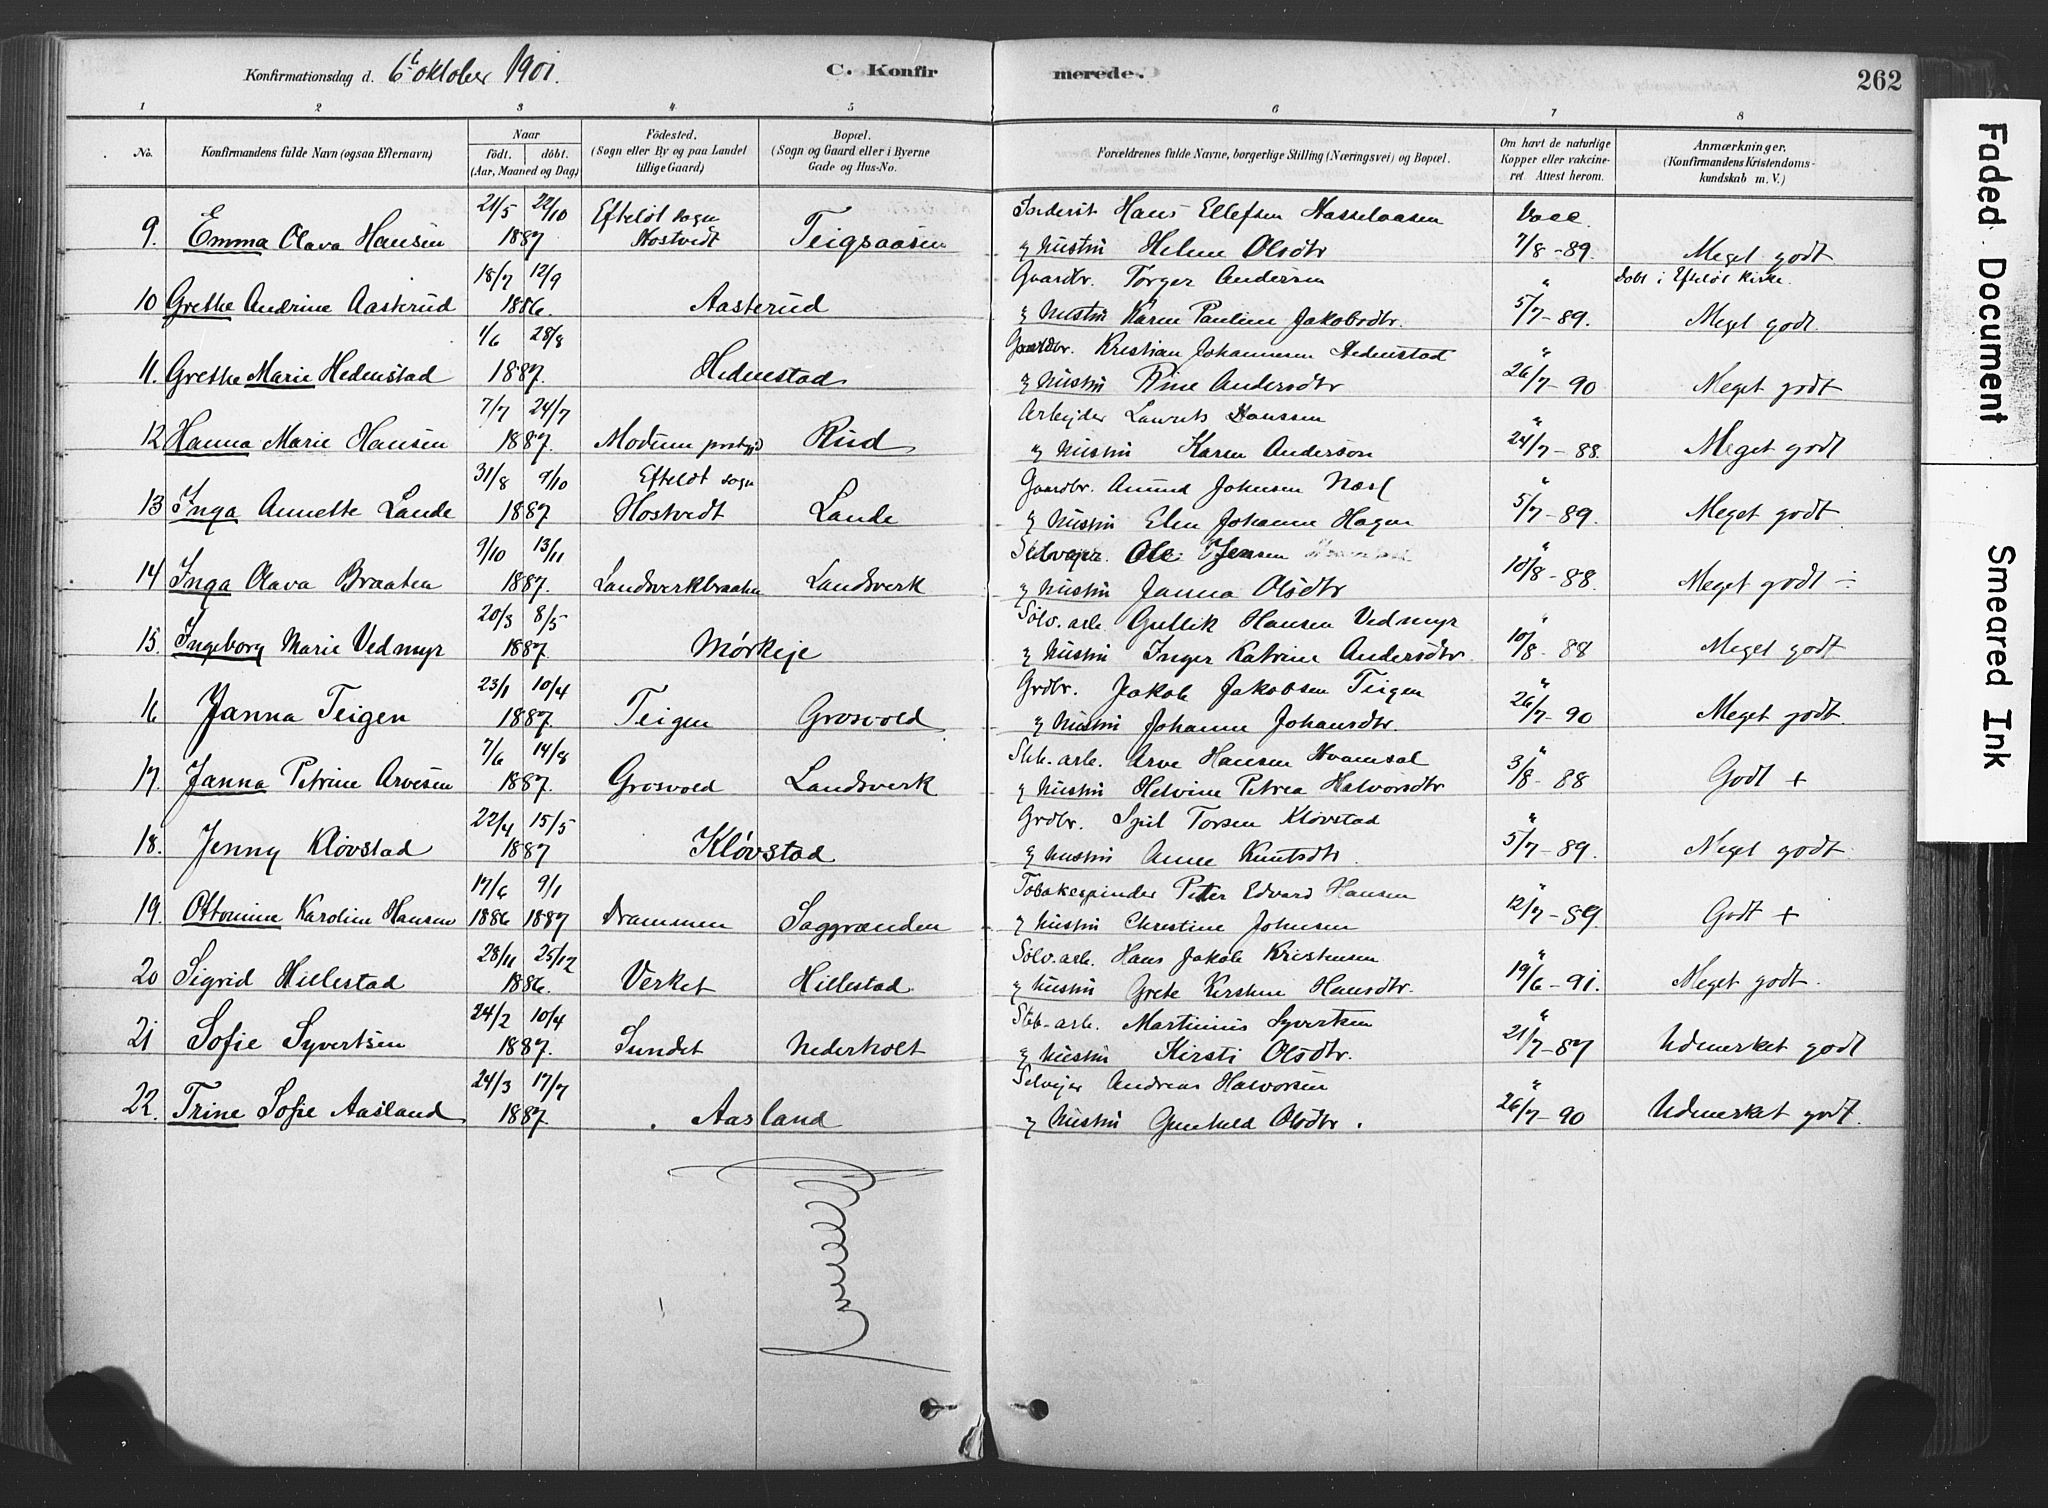 Konfirmationsdag d. 6t oktober 1901.
C. Konfirmerede.
262
1 2 3 4 5 6 7 8
No.
Konfirmandens fulde Navn (ogsaa Efternavn)
Naar
födt. döbt.
(Aar, Maaned og Dag)
Födested.
(Sogn eller By og paa Landet
tillige Gaard)
Bopæl.
(Sogn og Gaard eller i Byerne
Gade og Hus-No.
Forældrenes fulde Navne, borgerlige Stilling (Næringsvei) og Bopæl.
Om havt de naturlige
Kopper eller vakcine-
ret. Attest herom.
Anmærkninger.
(Konfirmandens Kristendoms-
kundskab m. V.)
21/5 22/10 Efteløt sogn Hans Ellefsen Hasselaasen Vacc.
9. Emma Olava Hansen 1887 Hostvedt Teigsaasen og hustru Helene Olsdtr 7/8-89. Meget godt
18/7 12/9 Gaardbr. Torger Andersen " Døbt i Efteløt Kirke.
10 Grethe Andrine Aasterud 1886. Aasterud og hustru Karen Pauline Jakobsdtr. 5/7-89. Meget godt
1/6 28/8 Gaardbr. Kristian Johannesen Hedenstad "
11. Grethe Marie Hedenstad 1887. Hedenstad og hustru Rine Andersdtr 26/7-90 Meget godt
7/7 24/7 Arbejder Laurits Hanssen "
12 Hanna Marie Hansen 1887. Modum prstgjd Rud og hustru Karen Anderson 24/7-88. Meget godt
31/8 9/10 Efteløt sogn Gaardbr. Amund Johnsen "
13 Inga Annette Lande 1887 Hostvedt Lande og hustru Elen Johanne Hagen 5/7-89. Meget godt
9/10 13/11 Selvejer Ole Jensen "
14 Inga Olava Braaten 1887. Landsverkbraaten Landsverk og hustru Janna Olsdtr 10/8-88. Meget godt ÷
20/3 8/5 Sølv.arb. Gullik Hansen Vedmyr "
15. Ingeborg Marie Vedmyr 1887. Mørkeje og hustru Inger Katrine Andersdtr. 10/8-88 Meget godt
23/1 10/4 Grdbr. Jakob Jakobsen Teigen "
16 Janna Teigen 1887. Teigen Grosvold og hustru Johanne Johansdtr. 26/7-90 Meget godt.
7/6 14/8 Stb.arb. Arve Hansen Kvamsal "
17. Janna Petrine Arvesen 1887. Grosvold Landsverk og hustru Helvine Petrea Halvorsdtr 3/8-88 Godt +
22/4 15/5 Grdbr. Torsen Kløvstad "
18. Jenny Kløvstad 1887 Kløvstad og hustru Anne Knutsdtr. 5/7-89. Meget godt.
17/6 9/1 Tobakspinder Peter Edvard Hansen "
19. Ottomine Karoline Hansen 1886 1887 Drammen Saggrænden og hustru Christine Johnsen 12/7-89. Godt +
28/11 25/12 Sølv.arb. Hans Jakob Kristensen "
20 Sigrid Hillestad 1886. Verket Hillestad og hustru Grete Kirstine Hansdtr. 19/6-91. Meget godt.
24/2 10/4 Stb-arb. Martinius Syvertsen "
21 Sofie Syvertsen 1887. Sundet Nederholt og hustru Kirsti Olsdtr. 21/7-87 Udmerket godt
24/3 17/7 Selvejer Andreas Halvorsen "
22. Trine Sofie Aasland 1887. Aasland og hustru Gunhild Olsdtr. 26/7-90 Udmerket godt.
Faded Document
Smeared Ink